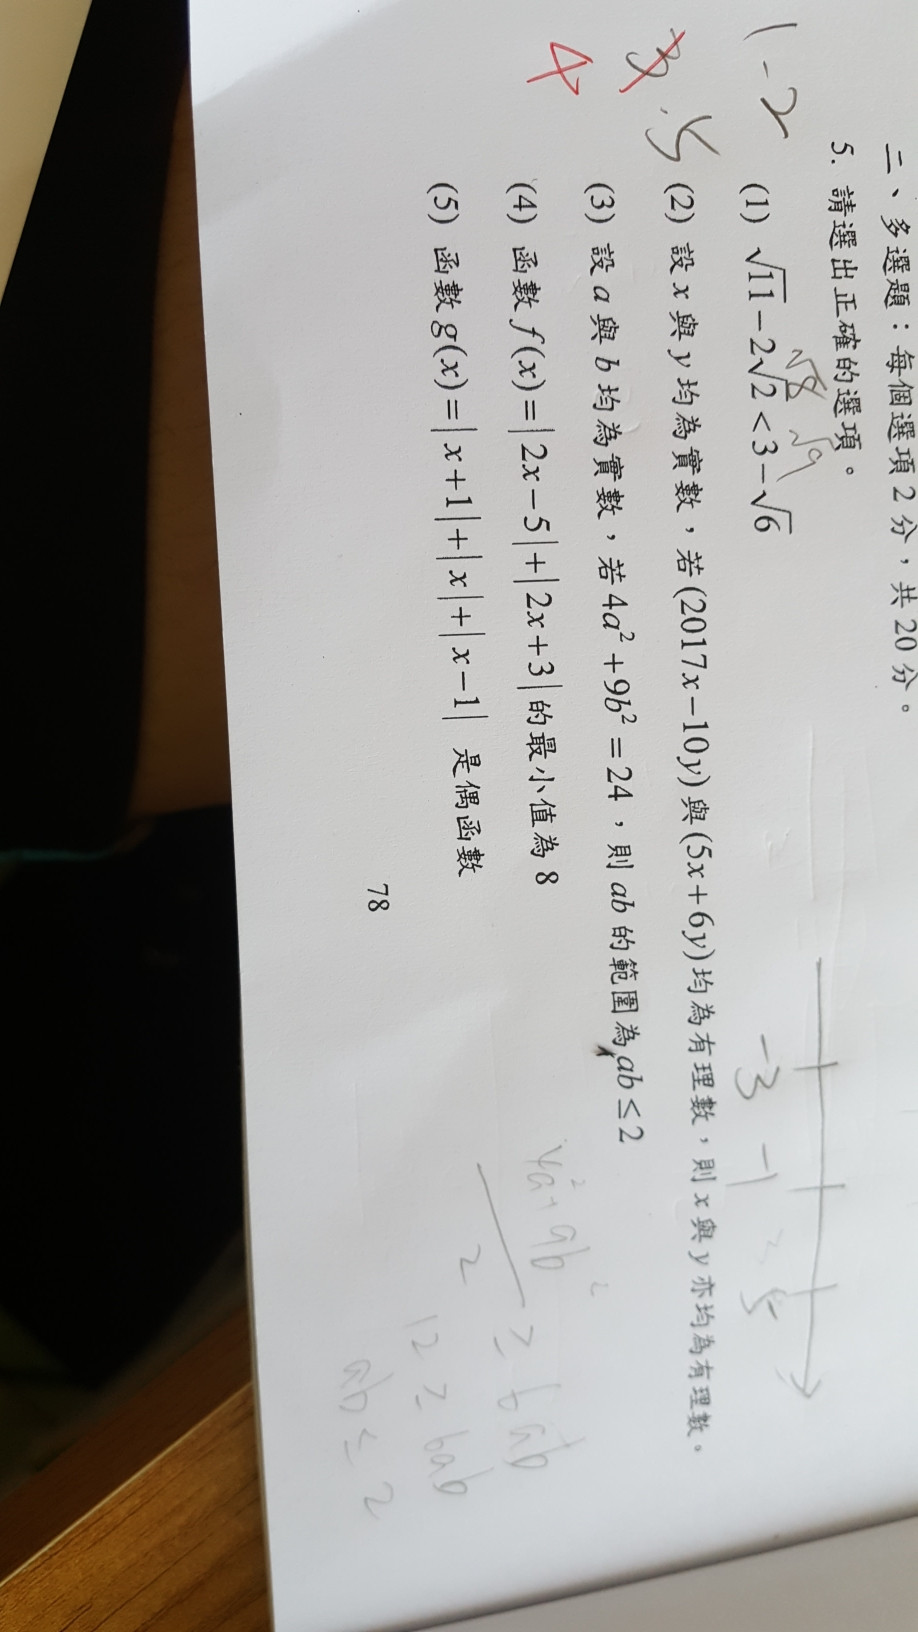 二、多選題：每個選項2分，共20分。
5. 請選出正確的選項。
(1) √11−2√2<3−√6
√8 √9
(2) 設x與y均為實數，若(2017x−10y)與(5x+6y)均為有理數，則x與y亦均為有理數。
(3) 設a與b均為實數，若4a²+9b²=24，則ab的範圍為ab≤2
(4) 函數f(x)=|2x−5|+|2x+3|的最小值為8
(5) 函數g(x)=|x+1|+|x|+|x−1| 是偶函數
78
1-2
3
.5
4
-3 -1 5
2
≥ 6ab
12 ≥ 6ab
ab ≤ 2